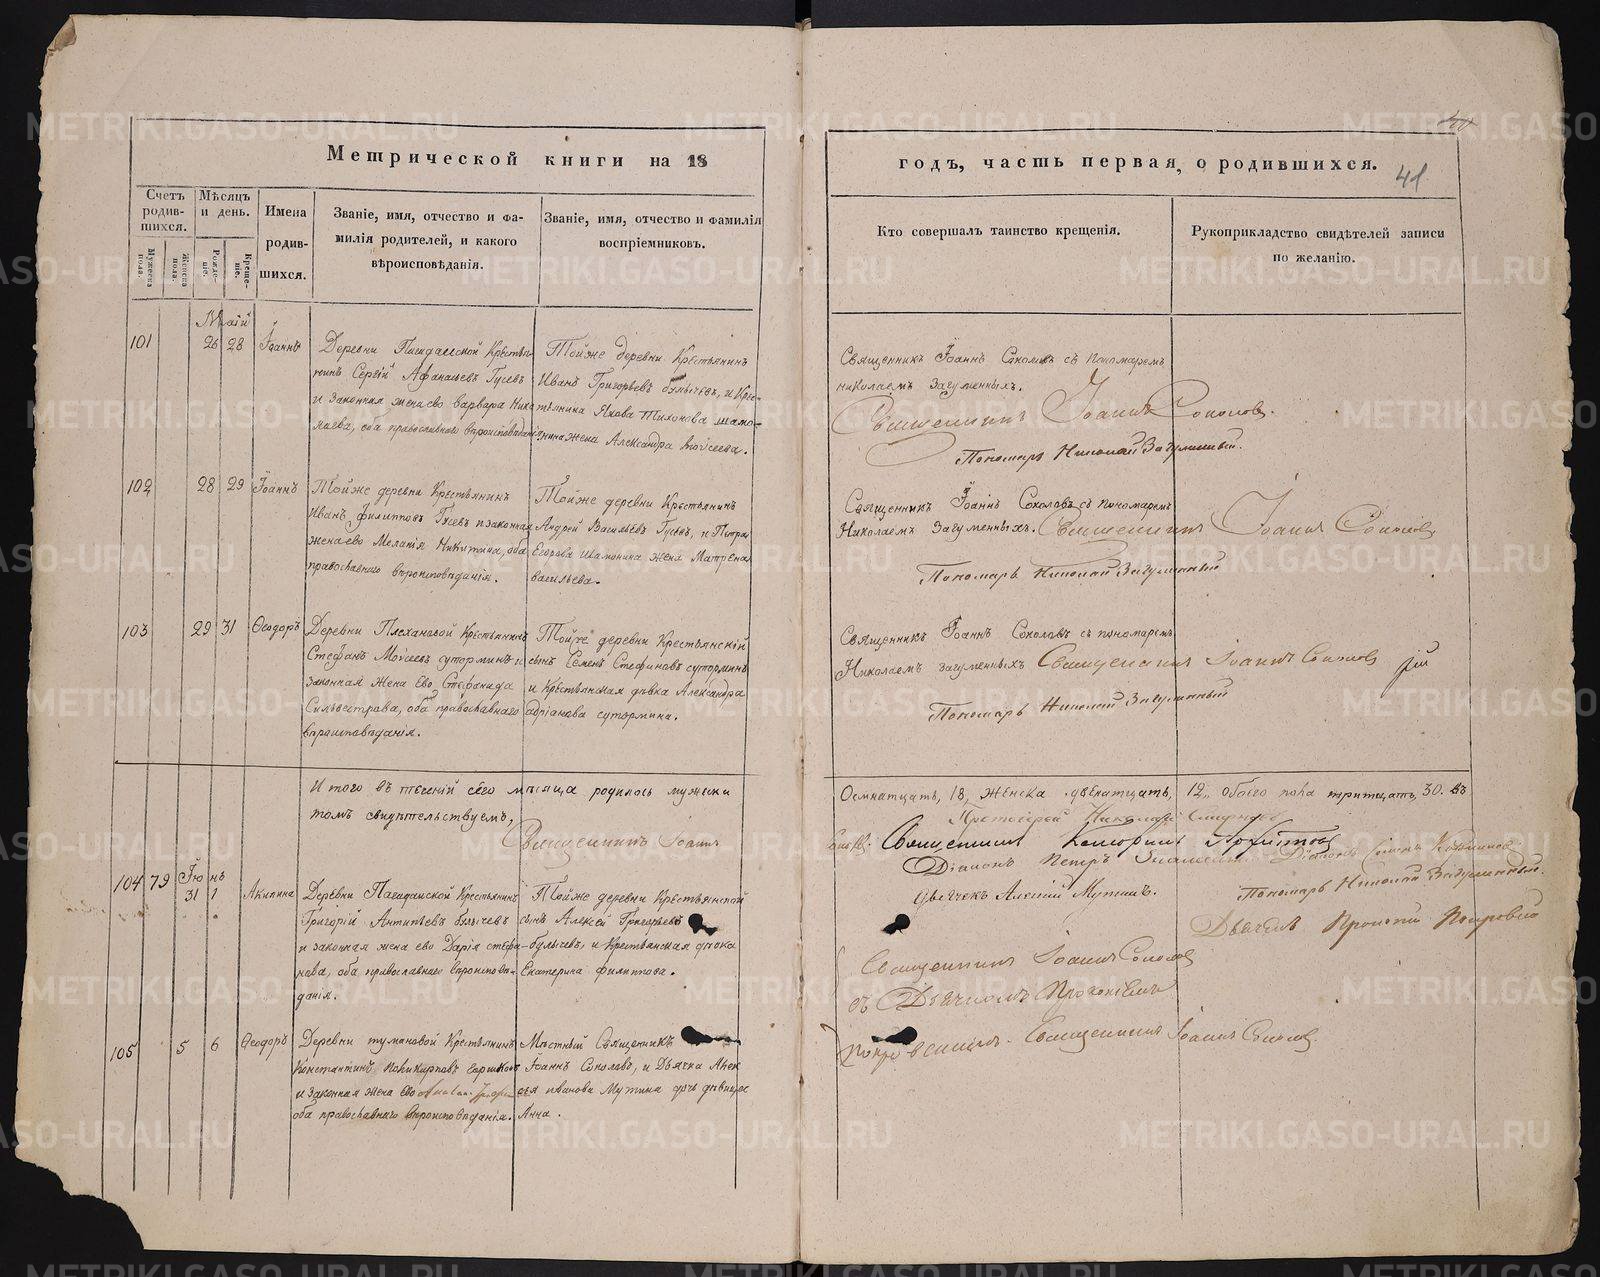 Метрической книги на 18
годъ, часть первая, о родившихся.
41
Счетъ родившихся.
Мѣсяцъ и день.
Имена родившихся.
Званіе, имя, отчество и фамилія родителей, и какого вѣроисповѣданія.
Званіе, имя, отчество и фамилія воспріемниковъ.
Кто совершалъ таинство крещенія.
Рукоприкладство свидѣтелей записи по желанію.
Мужеска пола.
Женска пола.
Рожденіе.
Крещеніе.
Маій
101
26 28
Іоаннъ
Деревни
Крестьянинъ Сергій Афанасьевъ Гусевъ
и законная жена его Варвара Николаева, оба православнаго вѣроисповѣданія
Тойже деревни Крестьянинъ
Иванъ Григорьевъ Булычевъ, и Крестьянина Якова Тихонова
жена Александра Моѵсеева.
Священникъ Іоаннъ Соколовъ съ пономаремъ
Николаемъ Загуменныхъ.
Священникъ Іоаннъ Соколовъ.
Пономарь Николай Загуменный.
102
28 29
Іоаннъ
Тойже деревни Крестьянинъ
Иванъ Филипповъ Гусевъ и законная
жена его Меланія Никитина, оба
православнаго вѣроисповѣданія.
Тойже деревни Крестьянинъ
Андрей Васильевъ Гусевъ, и Петра
Егорова Шамонина жена Матрена
Васильева.
Священникъ Іоаннъ Соколовъ съ пономаремъ
Николаемъ Загуменныхъ. Священникъ Іоаннъ Соколовъ
Пономарь Николай Загуменный
103
29 31
Ѳеодоръ
Деревни Плехановой Крестьянинъ
Стефанъ Моѵсеевъ Суторминъ и
законная жена его Стефанида
Сильвестрова, оба православнаго
вѣроисповѣданія.
Тойже деревни Крестьянскій
сынъ Семенъ Стефановъ Суторминъ
и Крестьянская дѣвка Александра
Адріанова Сутормина.
Священникъ Іоаннъ Соколовъ съ пономаремъ
Николаемъ Загуменныхъ Священникъ Іоаннъ Соколовъ
Пономарь Николай Загуменный
Итого въ теченій сего мѣсяца родилось мужеска
Осмнатцать, 18, женска двѣнатцать, 12, обоего пола тритцать, 30. въ
томъ свидѣтельствуемъ,
Священникъ Іоаннъ
Протоіерей Николай
Священникъ
Діаконъ Петръ
Діаконъ
Дьячекъ Алексій Мутинъ.
Пономарь Николай Загуменный.
Дьячекъ Прокопій
Іюнь
104 79
31 1
Акилина
Деревни
Крестьянинъ
Григорій Антипьевъ Булычевъ
и законная жена его Дарія Стефанова, оба православнаго вѣроисповѣданія.
Тойже деревни Крестьянской
сынъ Алексей Григорьевъ
Булычевъ, и Крестьянская дѣвка
Екатерина Филиппова.
Священникъ Іоаннъ Соколовъ
съ Дьячкомъ Прокопіемъ
105
5 6
Ѳеодоръ
Деревни Тумановой Крестьянинъ
Константинъ Поликарповъ
и законная жена его
оба православнаго вѣроисповѣданія.
Мѣстный Священникъ
Іоаннъ Соколовъ, и Дьячка Алексея Иванова Мутина дочь дѣвица
Анна.
Священникъ Іоаннъ Соколовъ.
METRIKI.GASO-URAL.RU